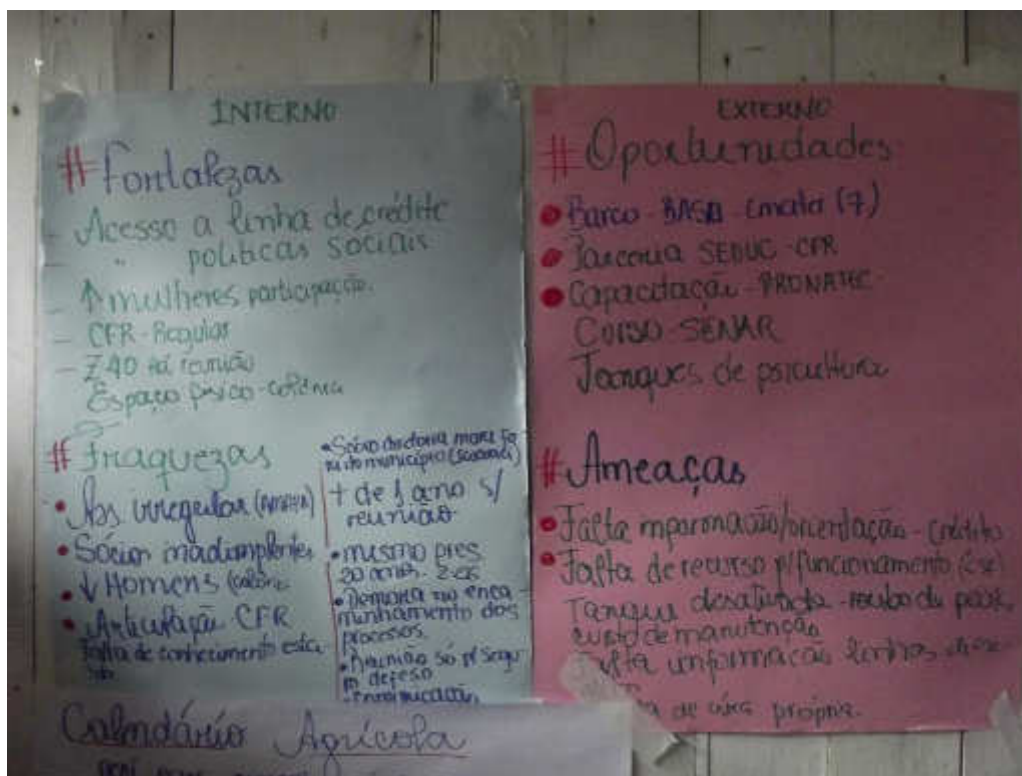 INTERNO
# Fortalezas
- Acesso a linha de crédito
- " políticas sociais
- ↑ mulheres participação.
- CFR - Regular
- Z40 há reunião
Espaço físico - colônia
# Fraquezas
• Ass irregular
• Sócios inadimplentes
• ↓ Homens
• Articulação CFR
Falta de conhecimento
• Sócio diretoria mora fo
ra do município
+ de 1 ano s/
reunião
• mesmo pres
20 anos.
• Demora no enca-
minhamento dos
processos.
• Reunião só p/ segu
ro defeso
EXTERNO
# Oportunidades
• Barco - BASA - Emater (7)
• Parceria SEDUC - CFR
• Capacitação - PRONATEC
Curso - SENAR
Tanques de piscicultura
# Ameaças
• Falta informação/orientação - crédito
• Falta de recurso p/ funcionamento
Tanque desativado - roubo de peixe,
custo de manutenção
Falta informação linhas
de área própria.
Calendário Agrícola